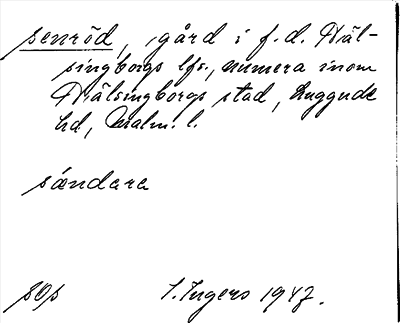 senröd, gård i f. d. Häl-
singborgs lfs., numera inom
Hälsingborgs stad, Luggude
hd, Malm. l.
sándara
sOs I. Ingers 1947.